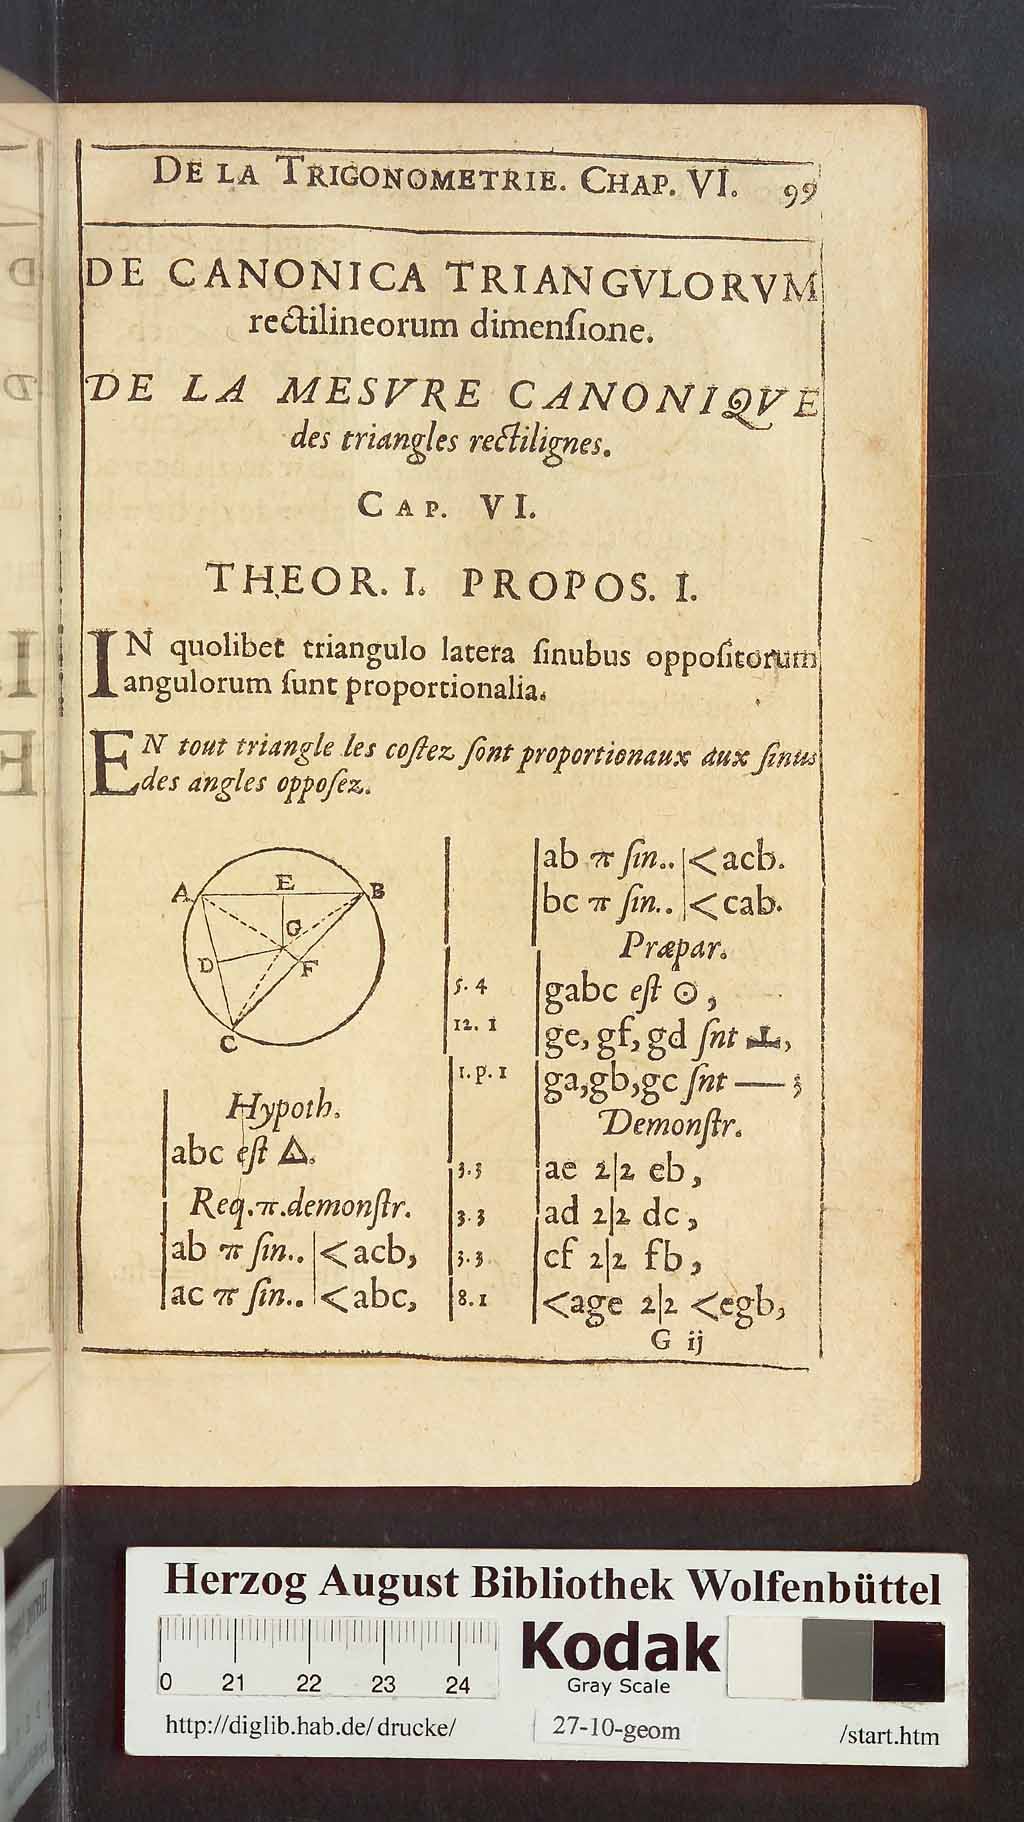 DE LA TRIGONOMETRIE. CHAP. VI. 99
DE CANONICA TRIANGVLORVM
rectilineorum dimensione.
DE LA MESVRE CANONIQVE
des triangles rectilignes.
CAP. VI.
THEOR. I. PROPOS. I.
IN quolibet triangulo latera sinubus oppositorum
angulorum sunt proportionalia.
EN tout triangle les costez sont proportionaux aux sinus
des angles opposez.
A E B
G
D F
C
Hypoth.
abc est △.
Req.π.demonstr.
ab π sin.. |< acb,
ac π sin.. |< abc,
ab π sin.. |< acb.
bc π sin.. |< cab.
Præpar.
5. 4 gabc est ⊙,
12. 1 ge, gf, gd snt ⊥,
1. p. 1 ga, gb, gc snt — ;
Demonstr.
3.3 ae 2|2 eb,
3.3 ad 2|2 dc,
3.3 cf 2|2 fb,
8.1 <age 2|2 <egb,
G ij
Herzog August Bibliothek Wolfenbüttel
0 21 22 23 24
Kodak
Gray Scale
http://diglib.hab.de/drucke/ 27-10-geom /start.htm